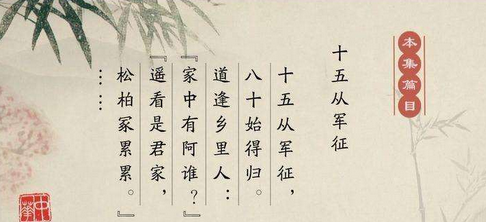 本集篇目
十五从军征
十五从军征，
八十始得归。
道逢乡里人：
『家中有阿谁？』
『遥看是君家，
松柏冢累累。』
……
中華